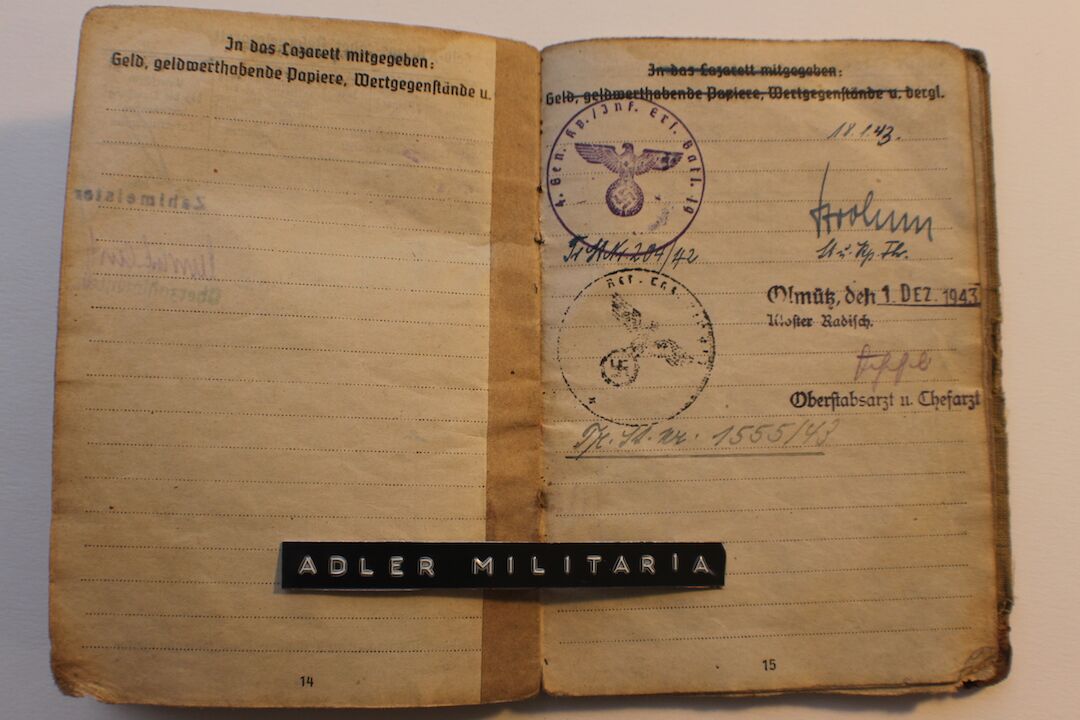 In das Lazarett mitgegeben:
Geld, geldwerthabende Papiere, Wertgegenstände u.
Zahlmeister
14
In das Lazarett mitgegeben:
Geld, geldwerthabende Papiere, Wertgegenstände u. dergl.
4. Gen. Kp./Inf. Ers. Batl. 19
18.1.43.
Tr. St. Nr. 204/42
u. Kp. Fhr.
Olmütz, den 1. DEZ. 1943
Kloster Radisch.
Oberstabsarzt u. Chefarzt
Tr. St. nr. 1555/43
ADLER MILITARIA
15